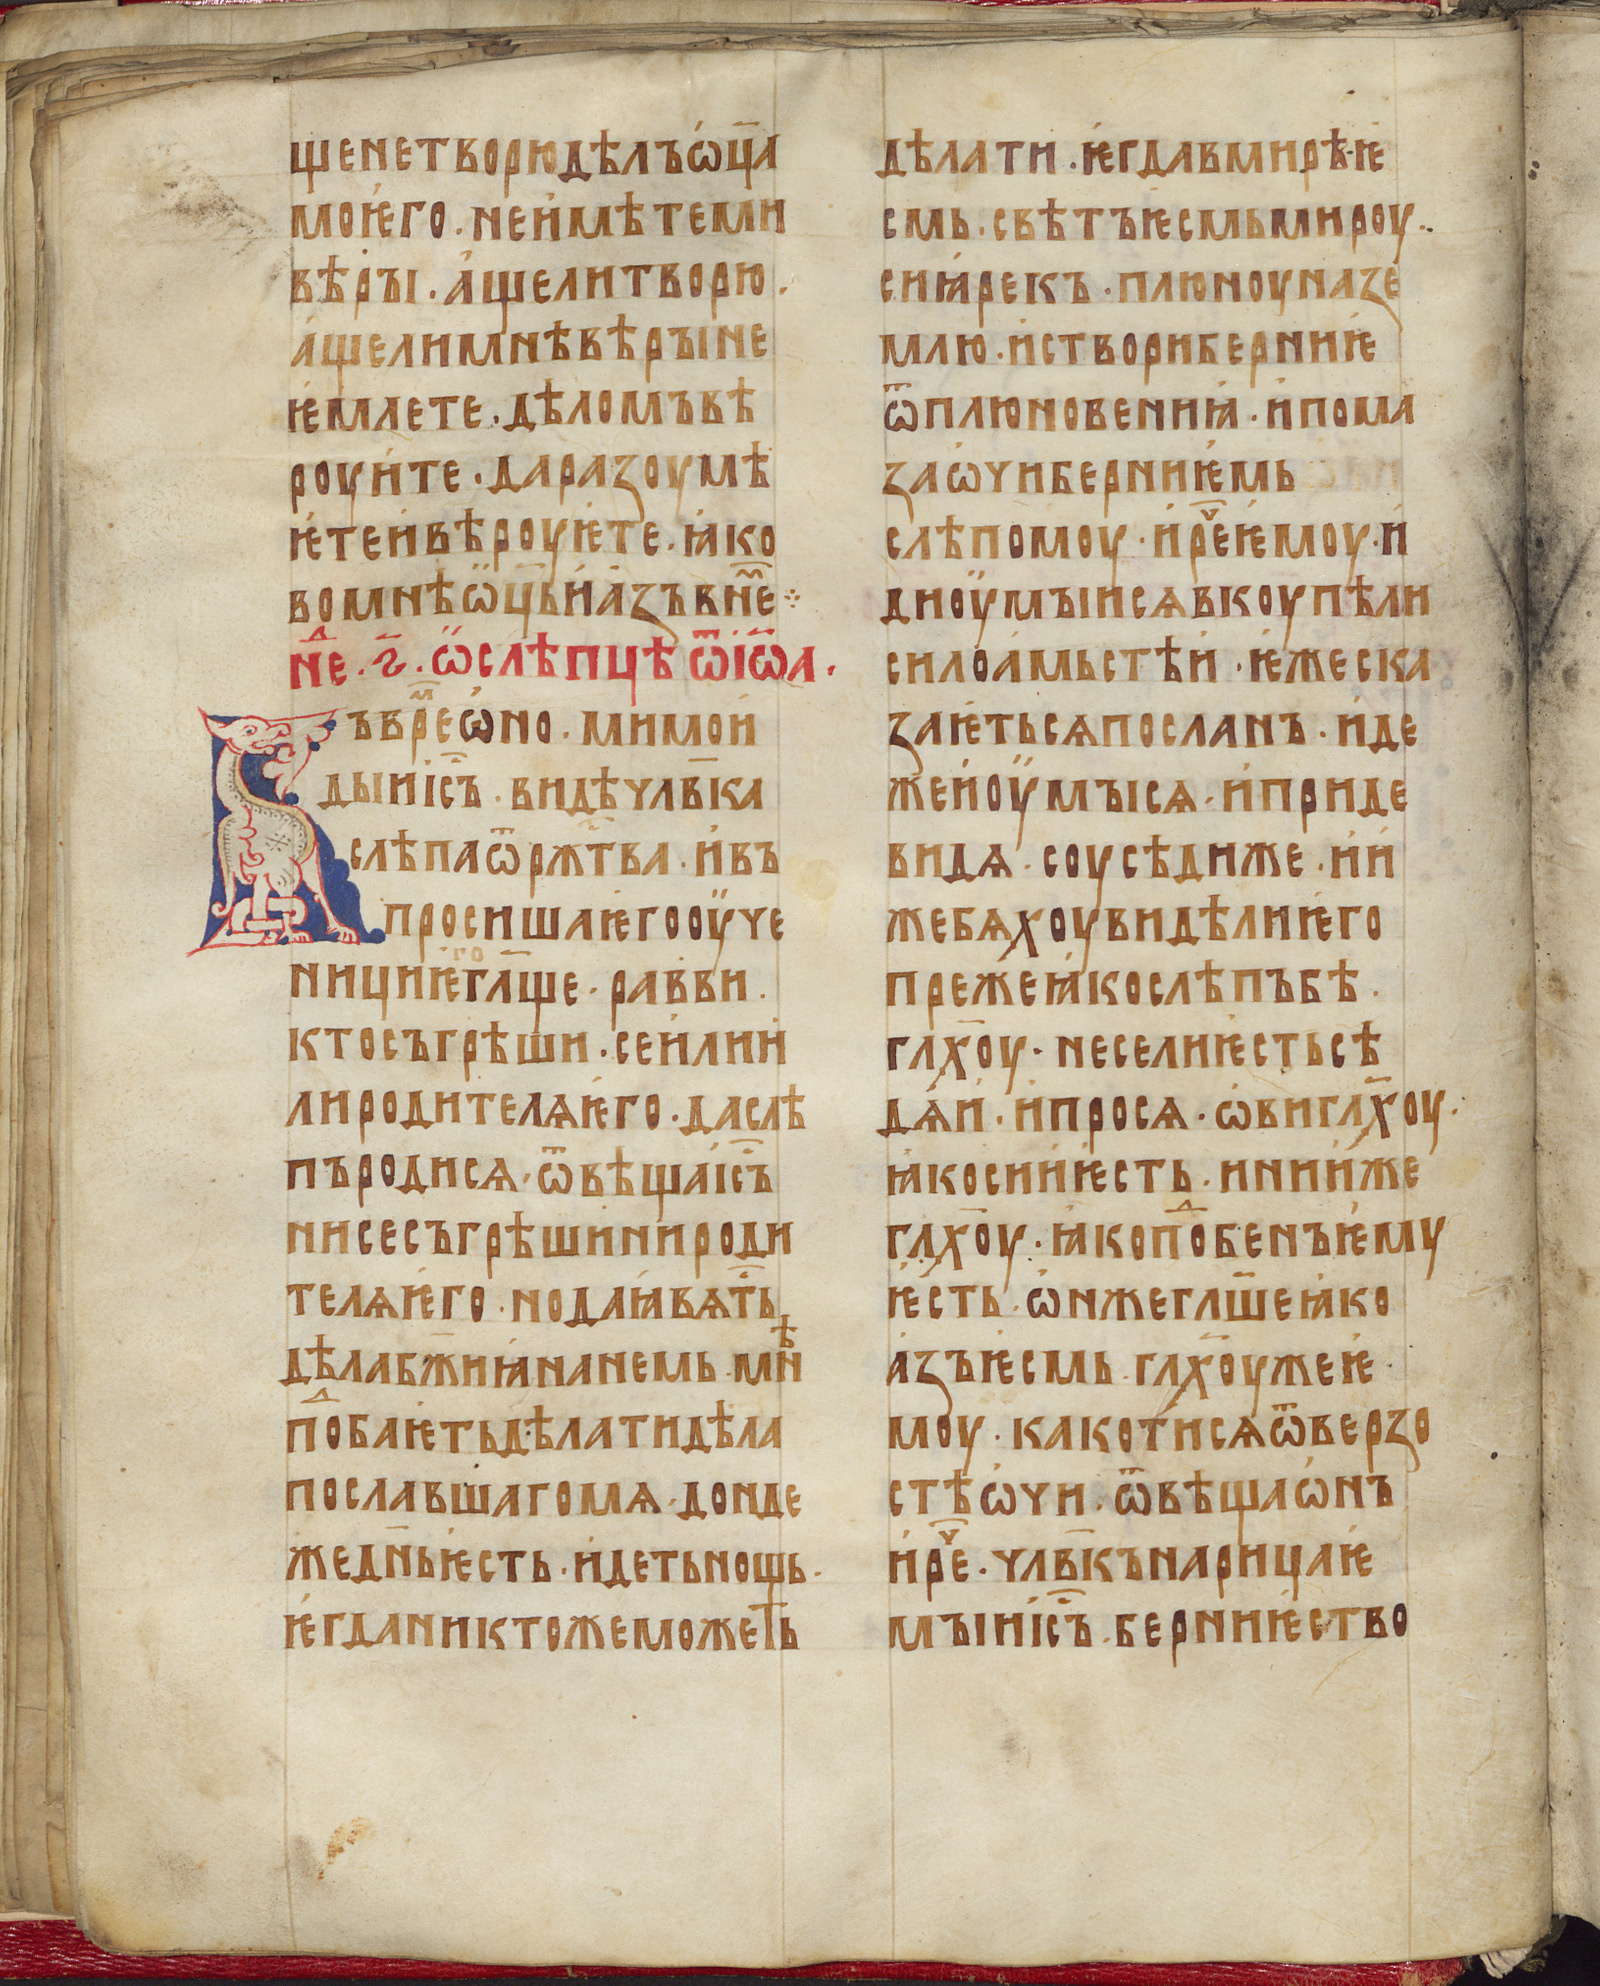 щенетворюдѣлъѡ́ц҃а
моѥ́го · неи́мѣтеми
вѣры · а́щелитворю ·
а́щелимнѣвѣрыне
ѥ́млете · дѣломъвѣ
роуи́те · даразоумѣ
ѥ́теи́вѣроуѥ́те · ꙗ́ко
вомнѣѡ҃ц҃ьи́а́зъвн҃е ⁘
нⷣе · г҃ · ѡ҆слѣпцѣѿі҆ѡ҃а ·
ъврⷨеѡ́но · мимои́
дыиіс҃ъ · видѣчлв҃ка
слѣпаѿрж҃тва · и́въ
просишаѥ́гооу҆че
нициѥ́гогл҃ще · равви ·
ктосъгрѣши · сеи́лии́
лиродителѧѥ́го · даслѣ
пъродисѧ · ѿвѣщаі҆с҃ъ
нисесъгрѣшинироди
телѧѥ́го · нодаꙗ́вѧт҃ь
дѣлабж҃иꙗ́нанемь · мнѣ
пⷣобаѥ́тьдѣлатидѣла
пославшагомѧ · донде
жедн҃ьѥ́сть · и́детьнощь ·
ѥ́гданиктожеможеть
дѣлати · ѥ́гдавмирѣѥ
смь · свѣтъѥ́смьмироу ·
сиꙗ́рекъ · плюноуназе
млю · и́створиберниѥ
ѿплюновениꙗ́ · и́пома
заѡ́чиберниѥ́мь
слѣпомоу · и́рⷱеѥ́моу · и́
диоу҆мыисѧвкоупѣли
силоа́мьстѣи́ · ѥ́жеска
заѥ́тьсѧпосланъ · и́де
жеи́оу҆мысѧ · и́приде
видѧ · соусѣдиже · и́и́
жебѧхоувидѣлиѥ́го
преже́ꙗ́кослѣпъбѣ ·
гл҃хоу · неселиѥ́стьсѣ
дѧ́и́ · и́просѧ · ѡ҆вигл҃хоу ·
ꙗ́косии́ѥ́сть · инии́же
гл҃хоу · ꙗ́копⷣобенъѥ́му
ѥ́сть · ѡ́нжегл҃шеꙗ́ко
а́зъѥ́смь · гл҃хоужеѥ́ ·
моу · какотисѧѿверзо
стѣѡ́чи · ѿвѣщаѡ́нъ
и́рⷱе · члв҃кънарицаѥ́
мыиі҆с҃ъ · берниѥ́ство